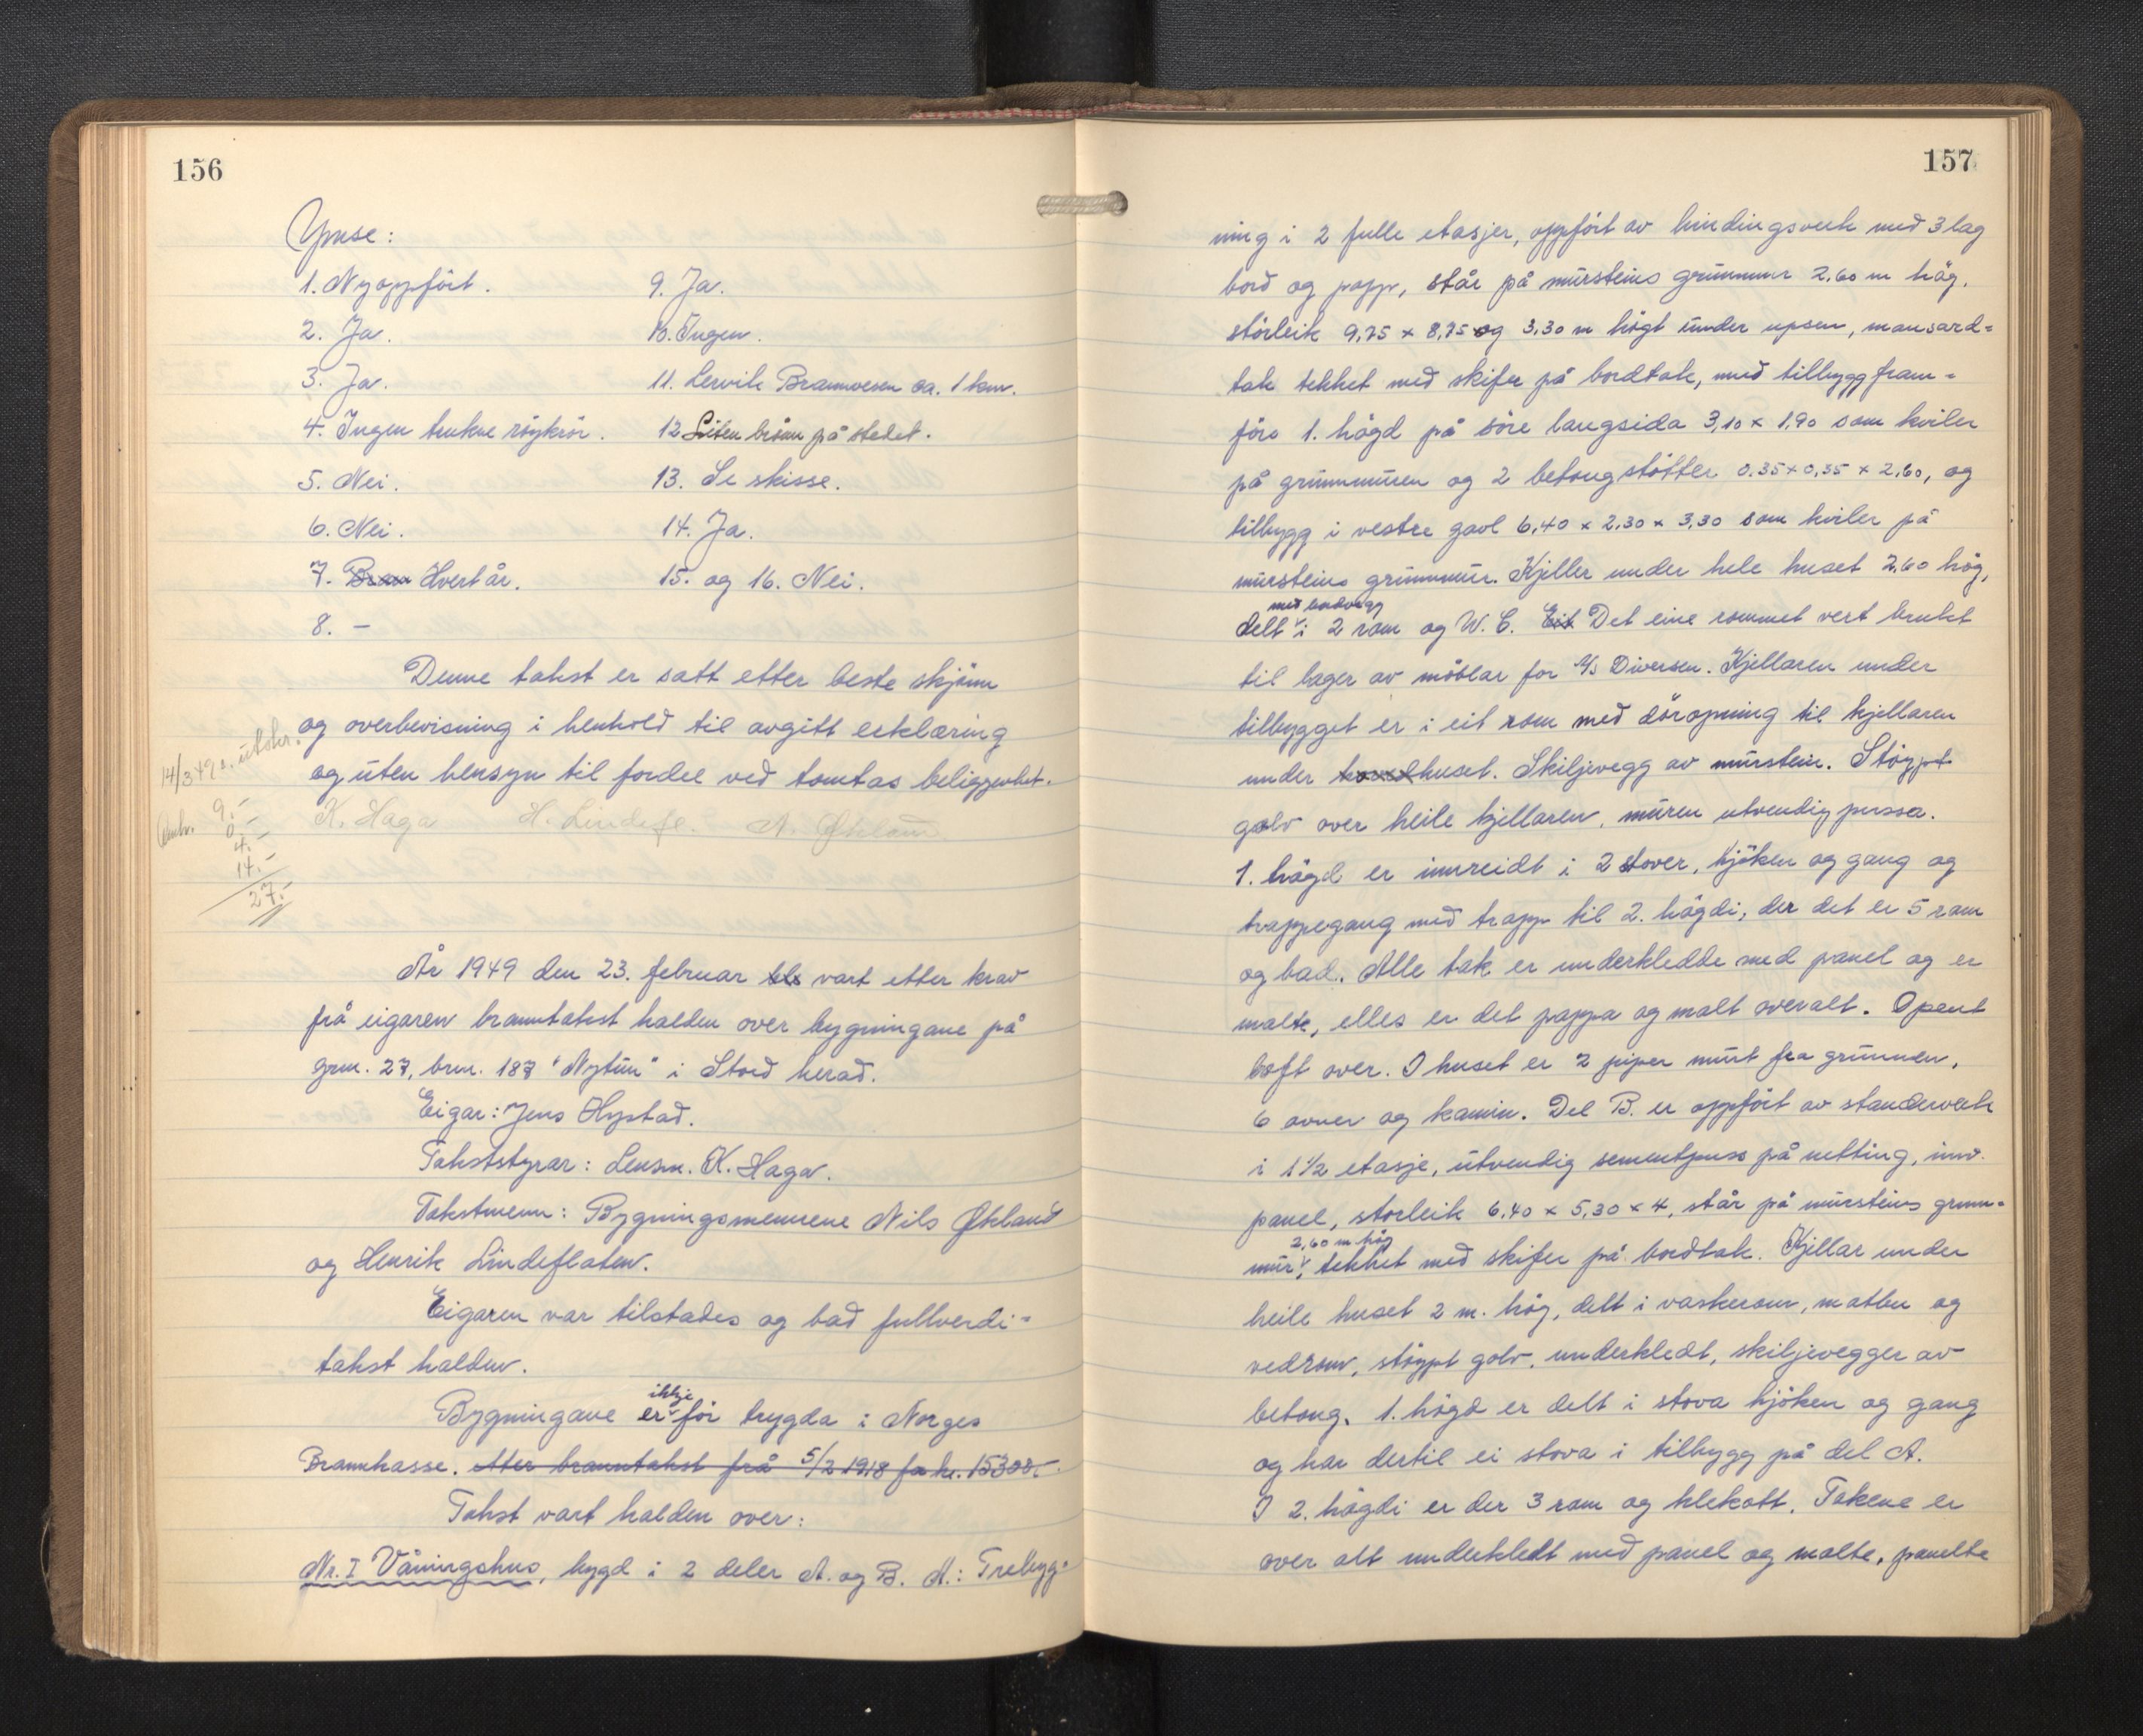 156
Ymse:
1. Nyoppført.
2. Ja.
3. Ja.
4. Ingen trukne røykrör.
5. Nei.
6. Nei.
7. Bran Hvert år.
8. —
9. Ja.
10. Ingen.
11. Lervik Brannvesen ca. 1 km.
12 Liten brönn på stedet.
13. Se skisse.
14. Ja.
15. og 16. Nei.
Denne takst er satt etter beste skjönn
og overbevisning i henhold til avgitt erklæring
og uten hensyn til fordel ved tomtas beliggenhet.
K. Haga H. Lindefl. N. Økland
14/3 49 utskr.
9.-
0.-
4.-
14.-
27.-
År 1949 den 23. februar ble vart etter krav
frå eigaren branntakst halden over bygningane på
grn. 27, brn. 187 "Nytun" i Stord herad.
Eigar: Jens Hystad.
Takststyrar: Lensm. K. Haga.
Takstmenn: Bygningsmennene Nils Økland
og Henrik Lindeflaten.
Eigaren var tilstades og bad fullverdi-
takst halden.
Bygningane er ikkje för trygda i Norges
Brannkasse. etter branntakst frå 5/2 1918 for kr. 15300,-
Takst vart halden over:
Nr. I Våningshus, bygd i 2 deler A. og B. A.: Trebyg-
157
ning i 2 fulle etasjer, oppfört av bindingsverk med 3 lag
bord og papp, står på mursteins grunnmur 2,60 m høg.
störleik 9,75 x 8,75 og 3,30 m högt under upsen, mansard-
tak tekket med skifer på bordtak, med tilbygg fram-
före 1. högd på söre langsida 3,10 x 1,90 som kviler
på grunnmuren og 2 betongstötter 0,35 x 0,35 x 2,60, og
tilbygg i vestre gavl 6,40 x 2,30 x 3,30 som kviler på
mursteins grunnmur. Kjeller under hele huset 2,60 høg,
delt med bordvegg i 2 rom og W. C. Eit Det eine rommet vert brukt
til lager av möblar for A/S Diversen. Kjellaren under
tilbygget er i eit rom med döropning til kjellaren
under huset. Skiljevegg av murstein. Støypt
golv over heile kjellaren, muren utvendig pussa.
1. högd er innreidt i 2 stover, kjöken og gang og
trappegang med trapp til 2. högdi, der det er 5 rom
og bad. Alle tak er underkledde med panel og er
malte, elles er det pappa og malt overalt. Opent
loft over. I huset er 2 piper murt fra grunnen,
6 ovner og kamin. Del B. er oppfört av standerverk
i 1 1/2 etasje, utvendig sementpuss på netting, innv.
panel, storleik 6,40 x 5,30 x 4, står på mursteins grunn-
mur 2,60 m høg, tekket med skifer på bordtak. Kjellar under
heile huset 2 m. høg, delt i vaskerom, matbu og
vedrom, støypt golv, underkledt, skiljevegger av
betong. 1. högd er delt i stova kjöken og gang
og har dertil ei stova i tilbygg på del A.
I 2. högdi er der 3 rom og klekott. Takene er
over alt underkledt med panel og malte, panelte